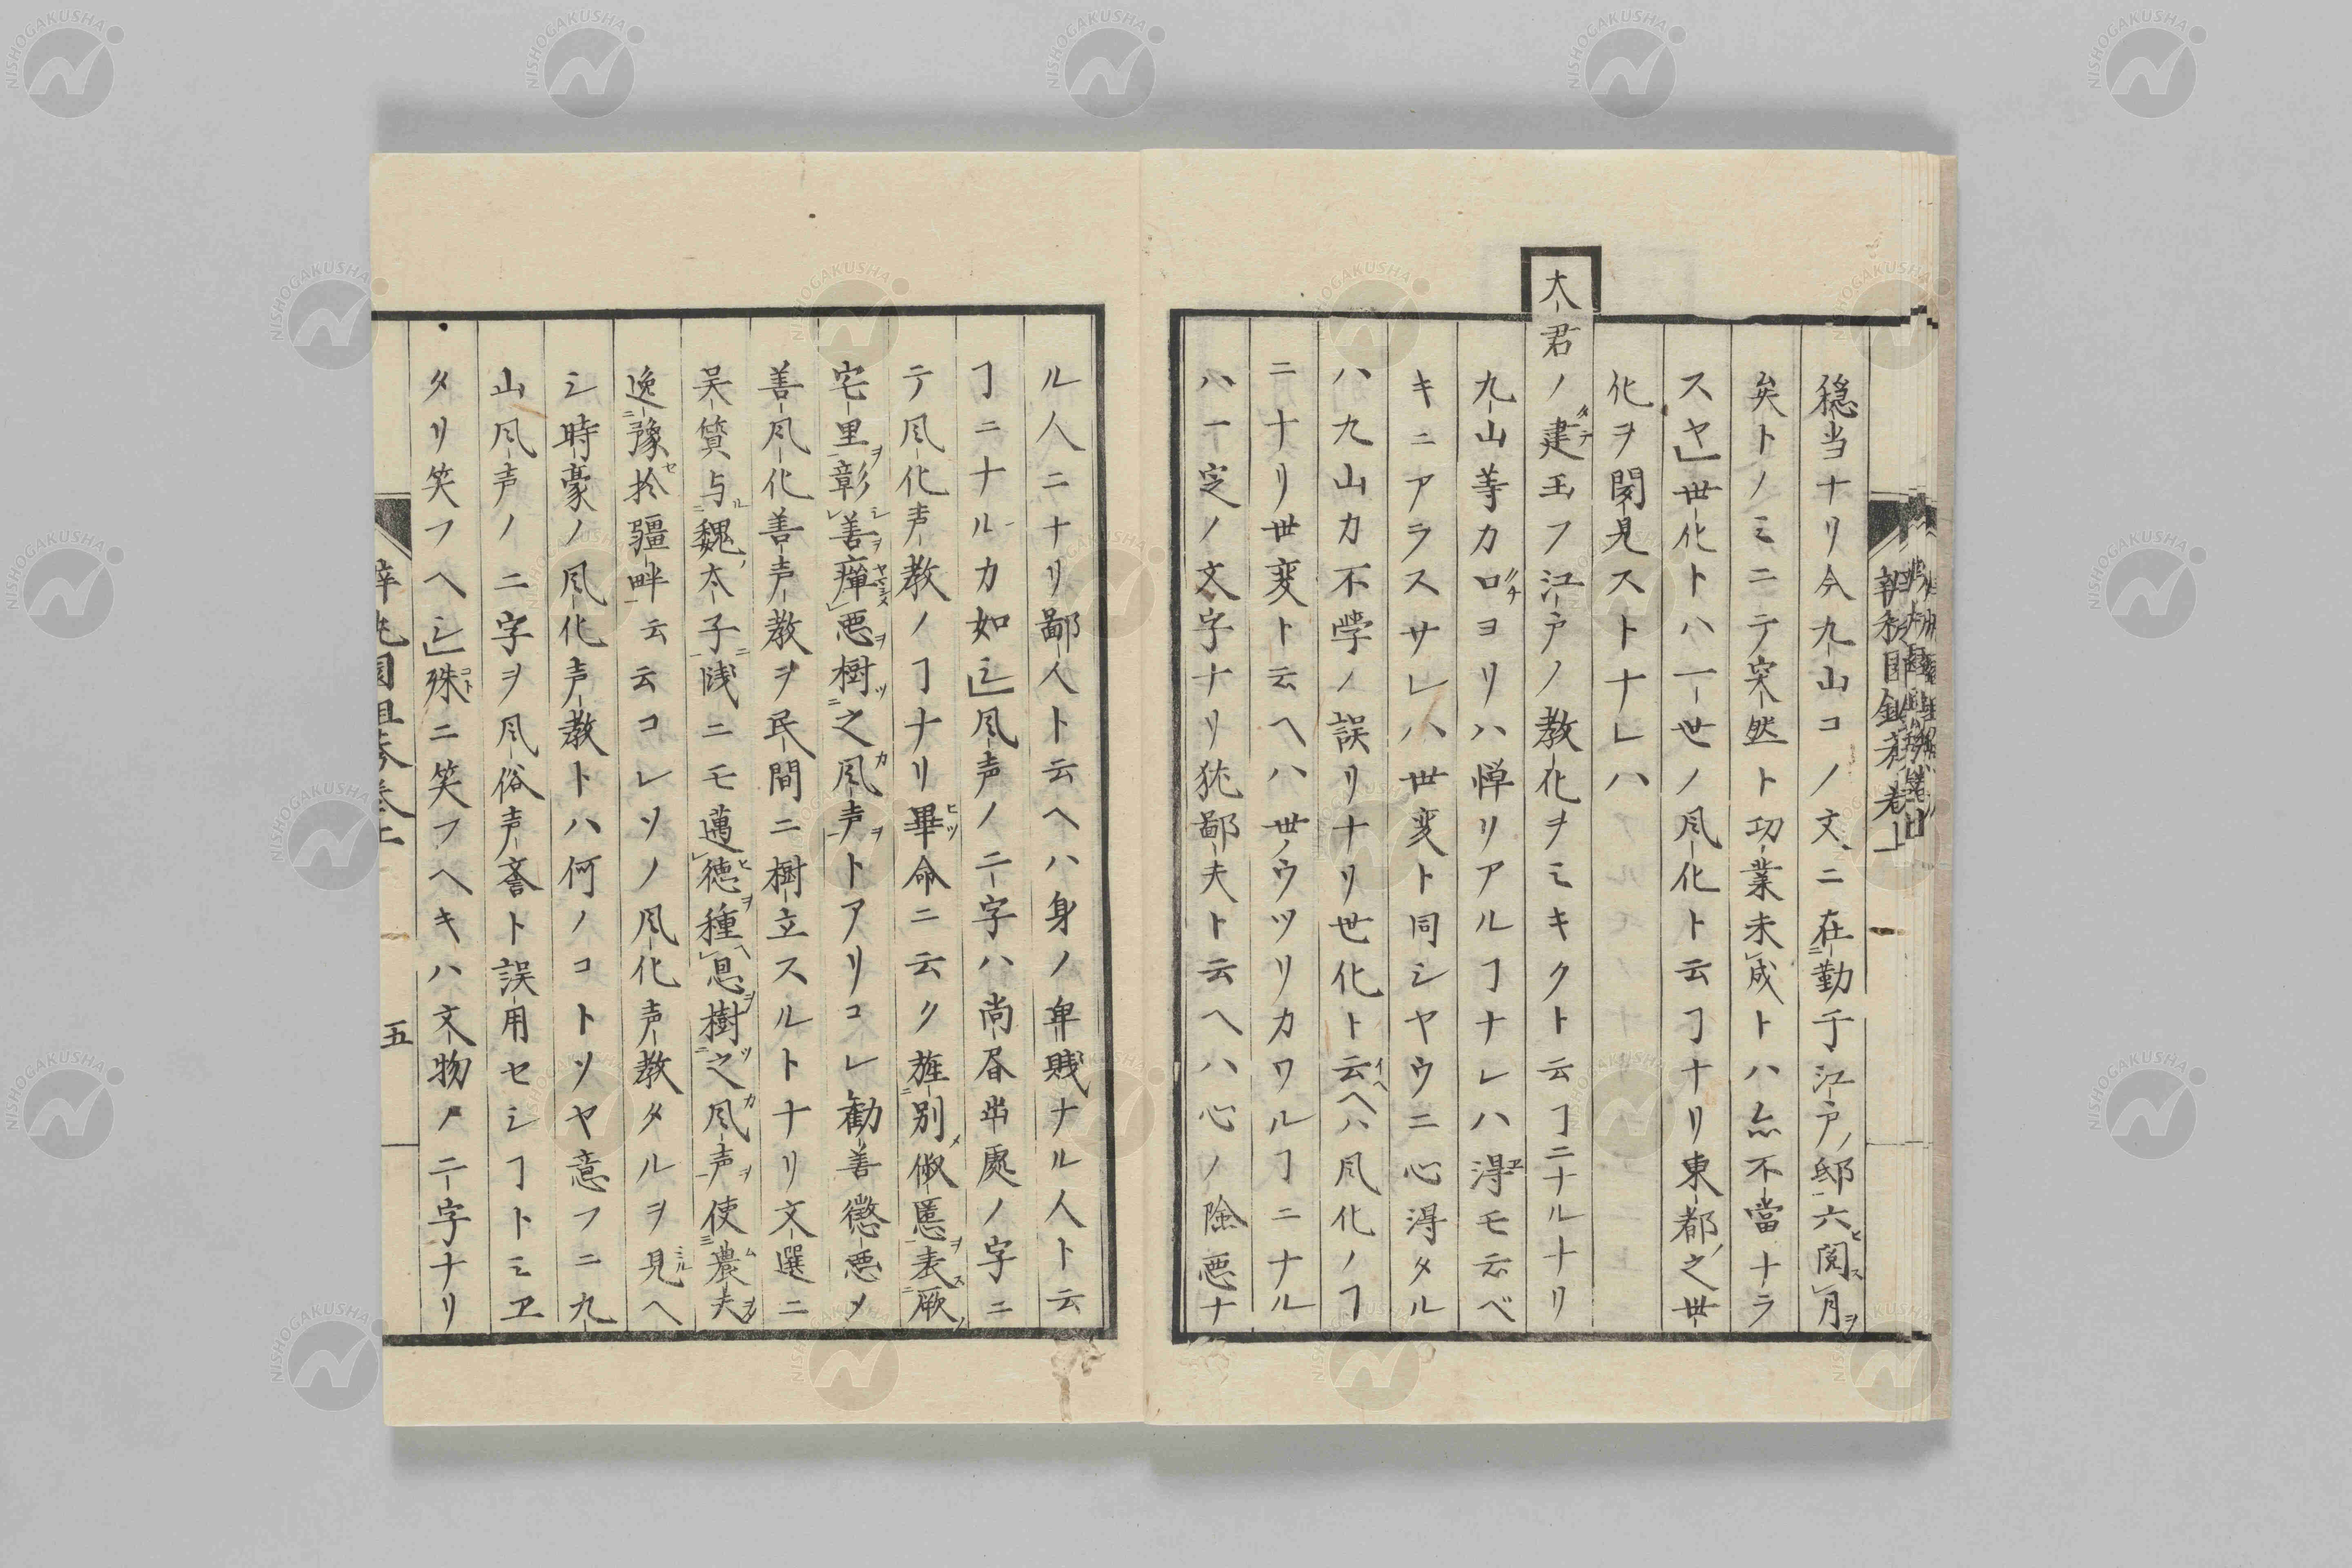 穏当ナリ今九山コノ文ニ在勤于江戸ノ邸六閲月ヲ
矣トノミニテ突然ト功業未成トハ亦不當ナラ
スヤ世化トハ一世ノ風化ト云ヿナリ東都之世
化ヲ閲見ストナレハ
大君ノ建玉フ江戸ノ教化ヲミキクト云ヿニナルナリ
九山等カ口ヨリハ憚リアルヿナレハ淂モ云ベ
キニアラスサレハ世変ト同シヤウニ心淂タル
ハ九山カ不学ノ誤リナリ世化ト云ヘハ風化ノヿ
ニナリ世変ト云ヘハ世ノウツリカワルヿニナル
ハ一定ノ文字ナリ犹鄙夫ト云ヘハ心ノ険悪ナ
ル人ニナリ鄙人ト云ヘハ身ノ卑賎ナル人ト云
ヿニナルカ如シ風声ノ二字ハ尚书出處ノ字ニ
テ風化声教ノヿナリ畢命ニ云ク旌別俶慝表厥
宅里彰善癉悪樹之風声トアリコレ勧善懲悪メ
善風化善声教ヲ民間ニ樹立スルトナリ文選ニ
吴質与魏太子牋ニモ邁徳種恩樹之風声使農夫
逸豫扵疆畔云云コレソノ風化声教タルヲ見ヘ
シ時豪ノ風化声教トハ何ノコトソヤ意フニ九
山風声ノ二字ヲ風俗声誉ト誤用セシヿトミヱ
タリ笑フヘシ殊ニ笑フヘキハ文物ノ二字ナリ
五